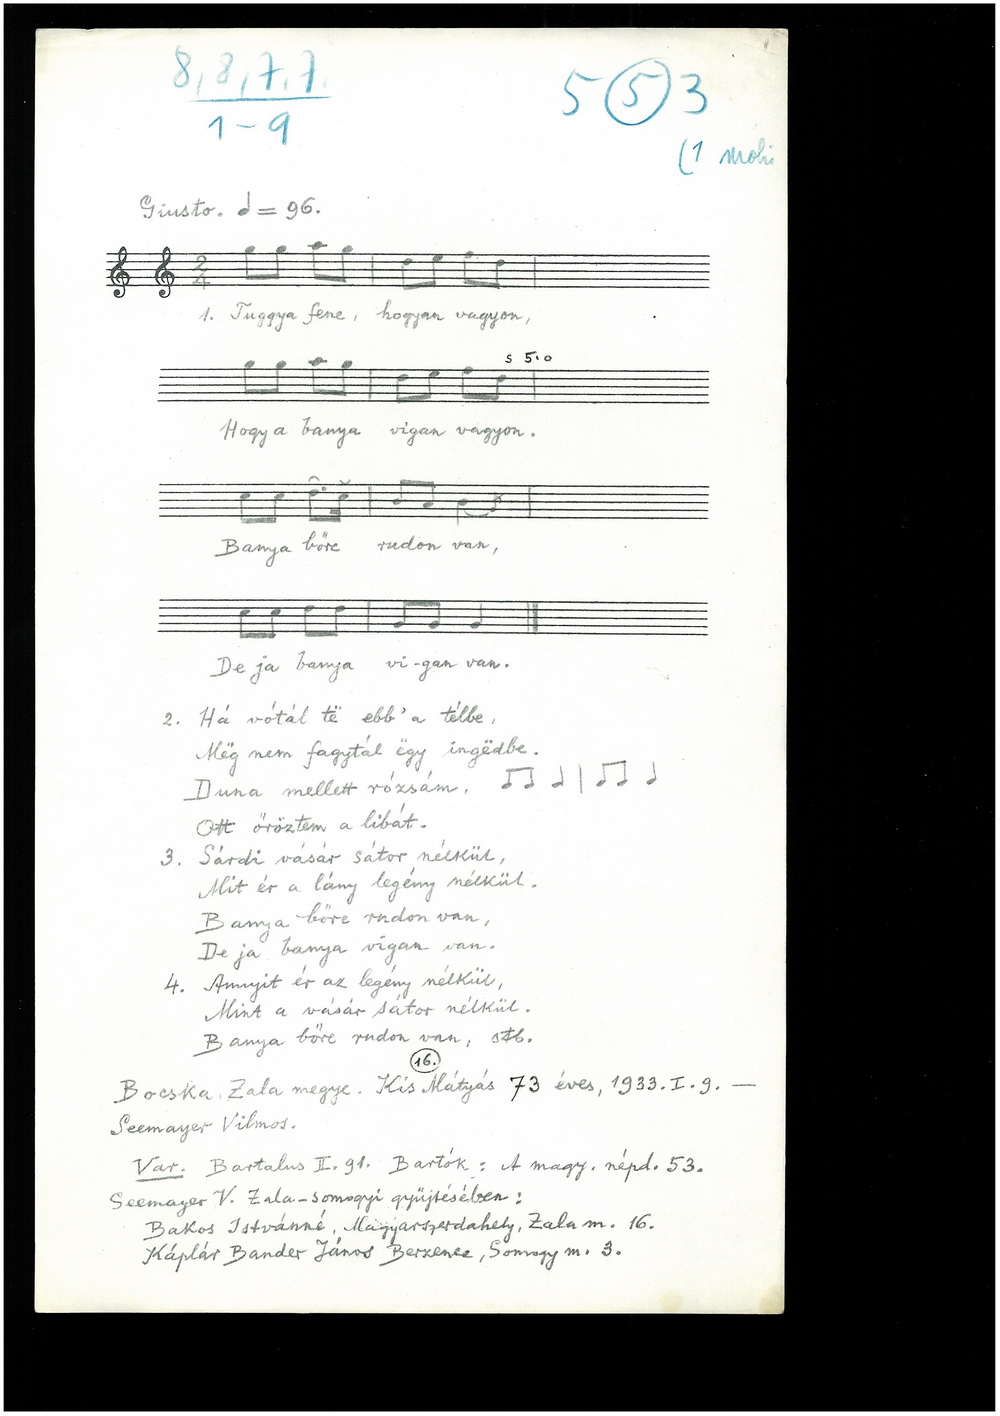 8, 8, 7, 7.
1-9
5 5 3
(1
Giusto. = 96.
2
4
1. Tuggya fene, hogyan vagyon,
s 5.o
Hogy a banya vigan vagyon.
Banya bőre rudon van,
De ja banya vi-gan van.
2. Há vótál të ebb'a télbe,
Mëg nem fagytál ëgy ingëdbe.
Duna mellett rózsám,
Ott őröztem a libát.
3. Sárdi vásár sátor nélkül,
Mit ér a lány legény nélkül.
Banya bőre rudon van,
De ja banya vigan van.
4. Annyit ér az legény nélkül,
Mint a vásár sátor nélkül.
Banya bőre rudon van, stb.
16.
Bocska. Zala megye. Kis Mátyás 73 éves, 1933. I. 9. —
Seemayer Vilmos.
Var. Bartalus II. 91. Bartók: A magy. népd. 53.
Seemayer V. Zala-somogyi gyűjtésében:
Bakos Istvánné, Magyarszerdahely, Zala m. 16.
Káplár Bander János Berzence, Somogy m. 3.